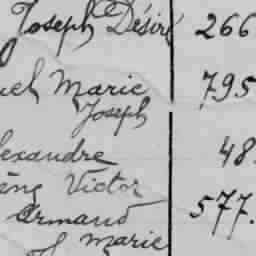 Joseph Désiré 266
Marie 795
Joseph
lexandre 48
Victor
Armand 577.
Marie